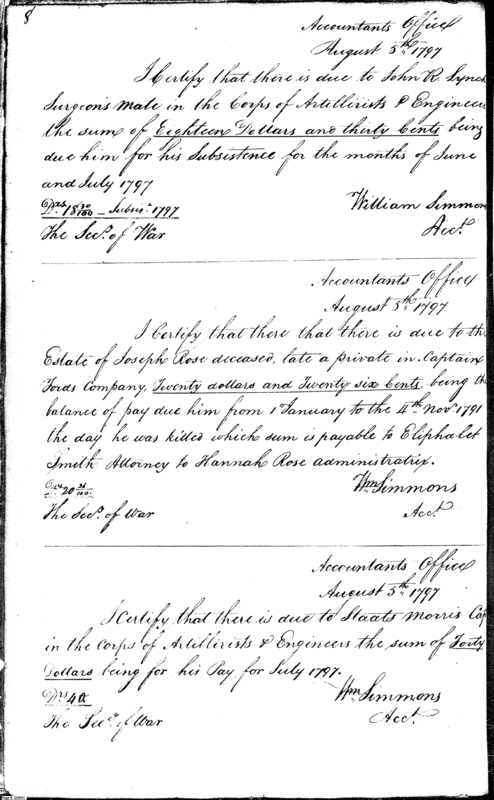 8
Accountants Office
August 5th 1797
I Certify that there is due to John R. Lynch
Surgeons Mate in the Corps of Artillirists & Engineers
the sum of Eighteen Dollars and thirty Cents being
due him for his Subsistence for the months of June
and July 1797
Drs. 18 30/100 - Subsis. 1797
William Simmons
The Secy. of War
Acct.
Accountants Office
August 5th 1797
I Certify that there that there is due to the
Estate of Joseph Rose deceased, late a private in Captain
Fords Company, Twenty dollars and Twenty six Cents being the
balance of pay due him from 1 January to the 4th Novr 1791
the day he was killed which sum is payable to Eliphalet
Smith Attorney to Hannah Rose administratrix.
Drs 20 26/100.
Wm Simmons
The Secy. of War
Acct.
Accountants Office
August 5th 1797
I Certify that there is due to Staats Morris Cap
in the Corps of Artillirists & Engineers the sum of Forty
Dollars being for his Pay for July 1797.
Drs 40
Wm Simmons
The Secy. of War
Acct.